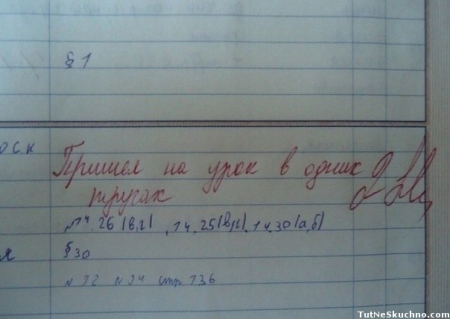 § 1
оск
Пришел на урок в одних
трусах
№ 14.26 (в,г), 14.25 (в,г), 14.30 (а,б)
§ 30
№ 32 № 34 стр. 136
TutNeSkuchno.com